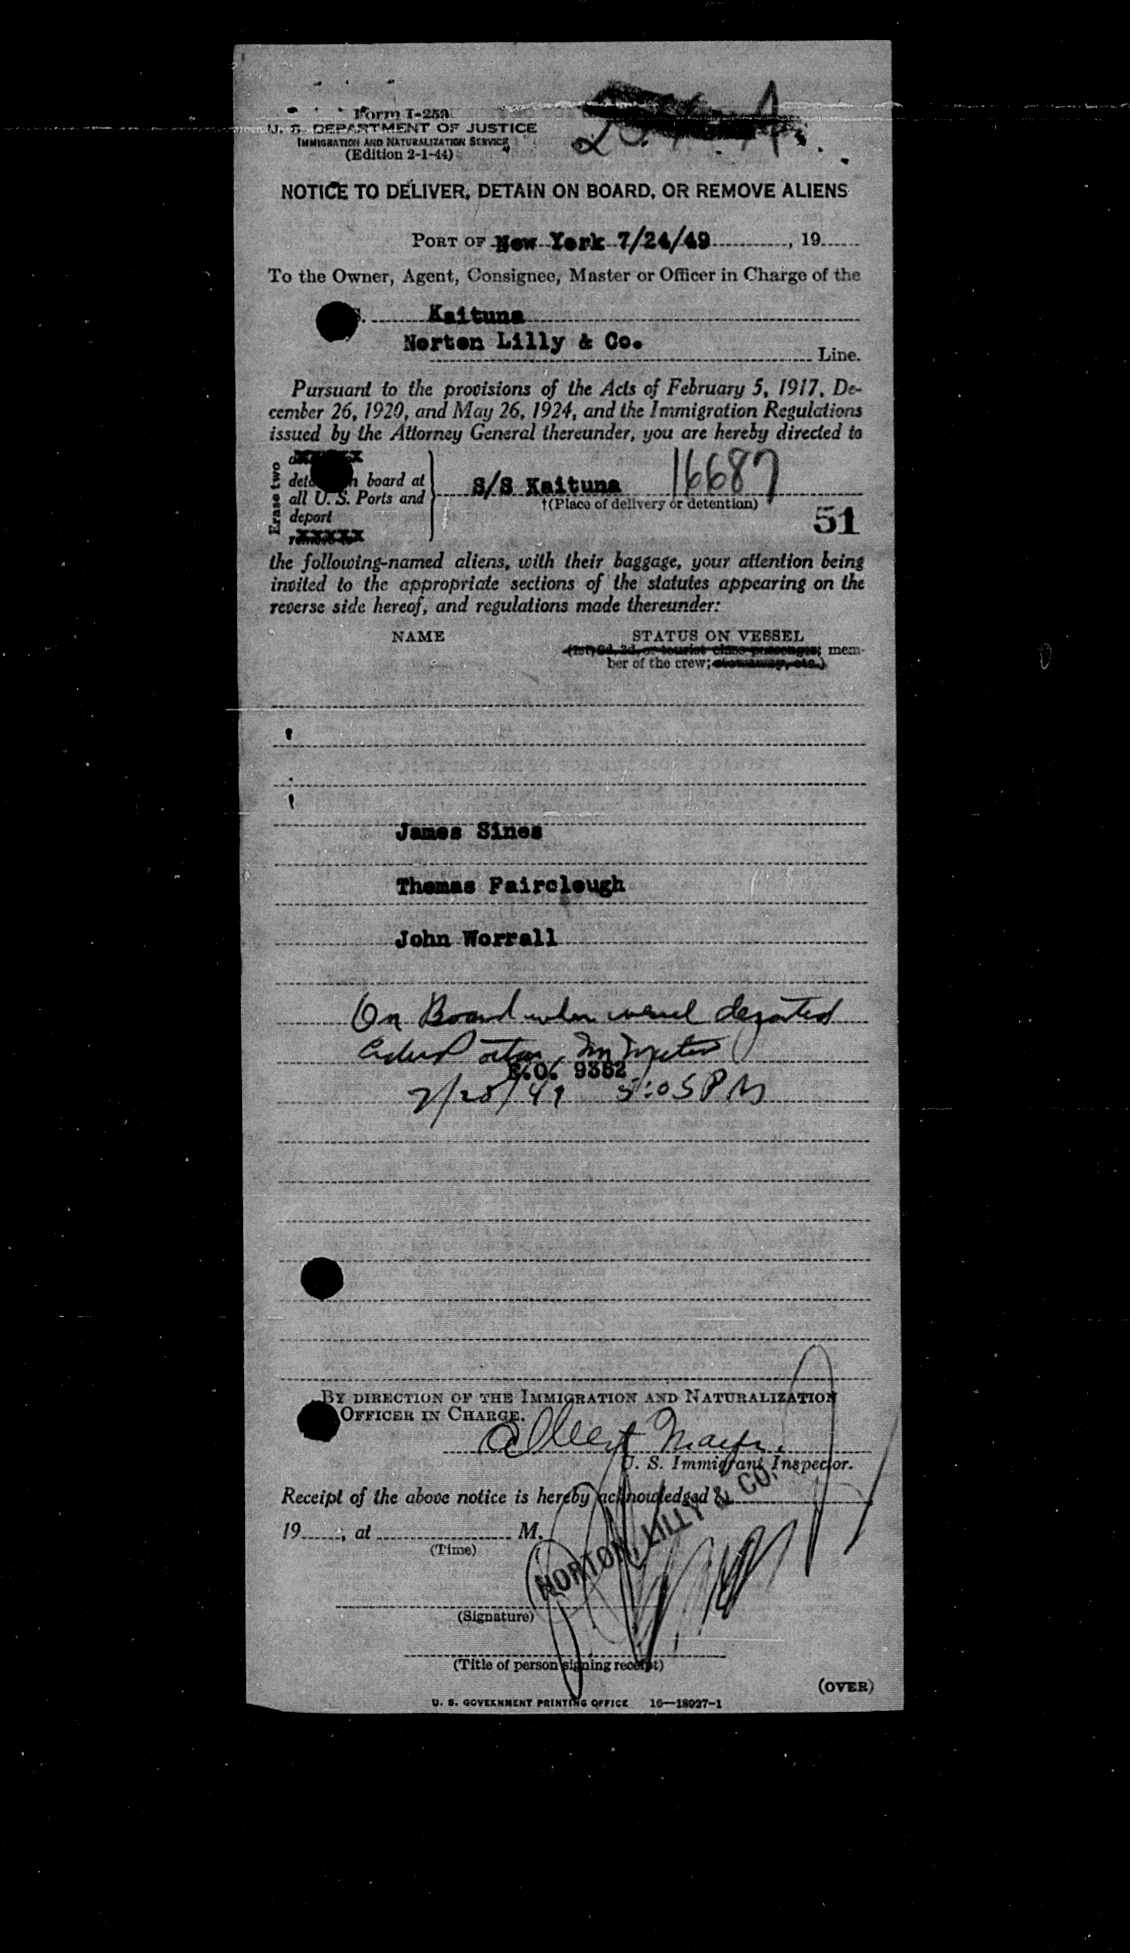 Form I-259
U. S. DEPARTMENT OF JUSTICE
IMMIGRATION AND NATURALIZATION SERVICE
(Edition 2-1-44)
NOTICE TO DELIVER, DETAIN ON BOARD, OR REMOVE ALIENS
PORT OF New York 7/24/49, 19
To the Owner, Agent, Consignee, Master or Officer in Charge of the
Kaituna
Norton Lilly & Co.
Line.
Pursuant to the provisions of the Acts of February 5, 1917, De-
cember 26, 1920, and May 26, 1924, and the Immigration Regulations
issued by the Attorney General thereunder, you are hereby directed to
Erase two
board at
all U. S. Ports and
deport
S/S Kaituna 16687
†(Place of delivery or detention)
51
the following-named aliens, with their baggage, your attention being
invited to the appropriate sections of the statutes appearing on the
reverse side hereof, and regulations made thereunder:
NAME STATUS ON VESSEL
(1st, 2d, 3d, or tourist class passenger; mem-
ber of the crew; stowaway, etc.)
James Sines
Thomas Fairclough
John Worrall
On Board when vessel departed
E.O. 9352
7/28/49 5:05 PM
BY DIRECTION OF THE IMMIGRATION AND NATURALIZATION
OFFICER IN CHARGE.
Albert
U. S. Immigrant Inspector.
Receipt of the above notice is hereby acknowledged
19, at M.
(Time)
NORTON, LILLY & CO.
(Signature)
(Title of person signing receipt)
(OVER)
U. S. GOVERNMENT PRINTING OFFICE 16—18027-1